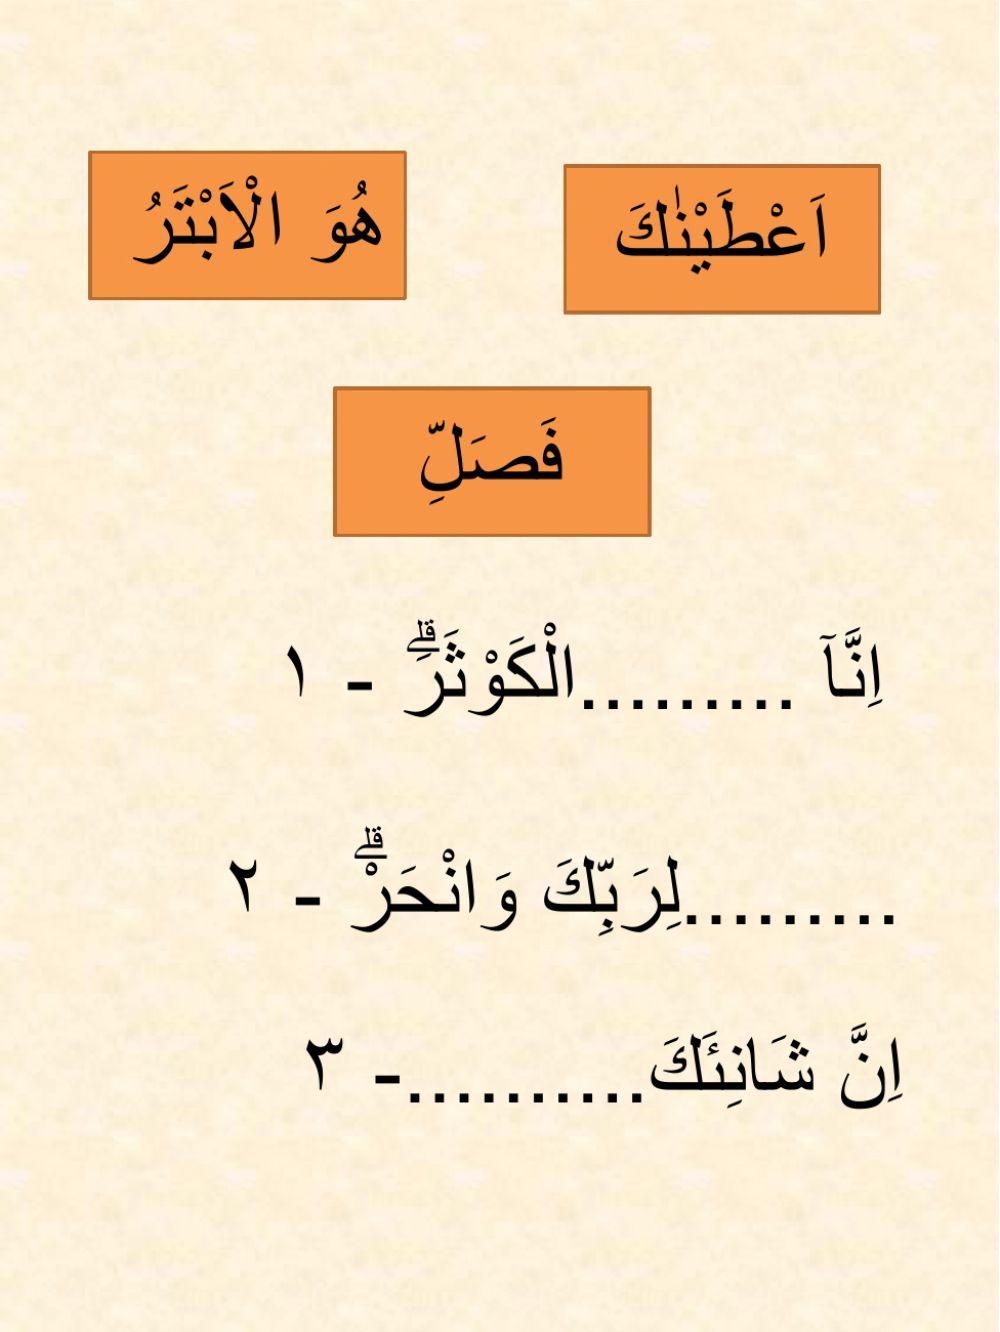 اَعْطَيْنٰكَ
هُوَ الْاَبْتَرُ
فَصَلِّ
اِنَّآ .........الْكَوْثَرَۗ - ١
.........لِرَبِّكَ وَانْحَرْۗ - ٢
اِنَّ شَانِئَكَ..........- ٣